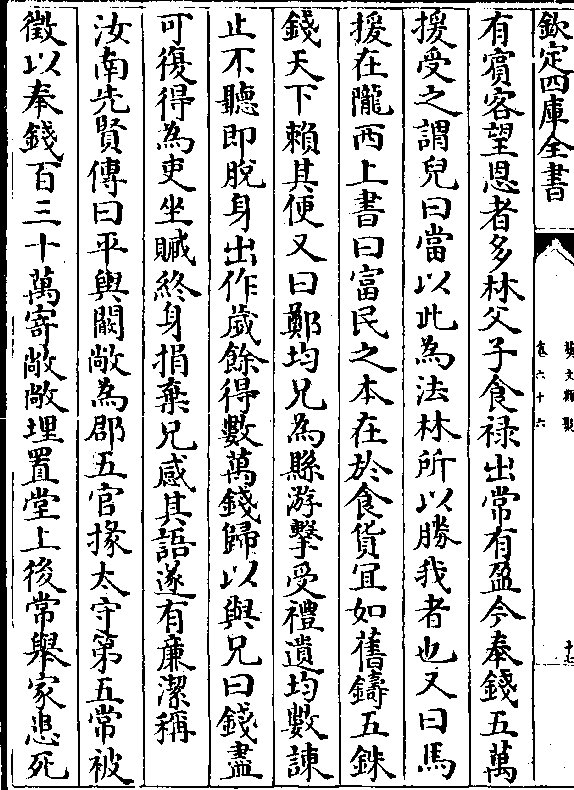 欽定四庫全書
藝文類聚
卷六十六
有賓客望恩者多林父子食禄出常有盈今奉錢五萬
援受之謂兒曰當以此為法林所以勝我者也又曰馬
援在隴西上書曰富民之本在於食貨宜如舊鑄五銖
錢天下賴其便又曰鄭均兄為縣游擊受禮遺均數諫
止不聽即脫身出作歲餘得數萬錢歸以與兄曰錢盡
可復得為吏坐贓終身捐棄兄感其語遂有廉潔稱
汝南先賢傳曰平輿闞敞為郡五官掾太守第五常被
徵以奉錢百三十萬寄敞敞埋置堂上後常舉家患死